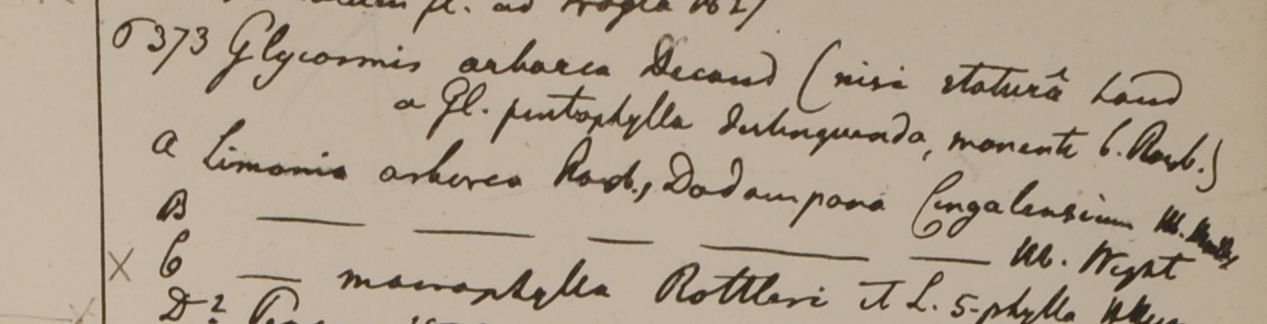 fl. ad 1827
6373 Glycosmis arborea Decand (nisi staturâ haud
a Gl. pentaphylla distinguenda, monente b. Roxb.)
a Limonia arborea Roxb., Dodampana Cingalensium
B — — — — — Hb. Wight
X C — macrophylla Rottleri et L. 5-phylla
D?